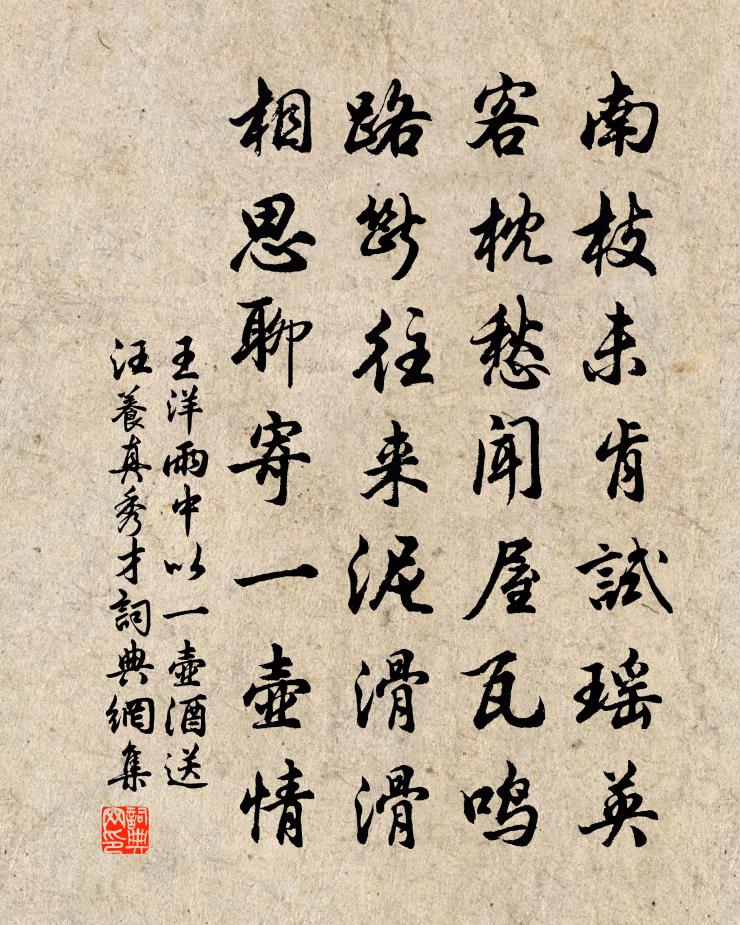 南枝未肯試瑶英
客枕愁聞屋瓦鳴
路斷往来泥滑滑
相思聊寄一壺情
王洋雨中以一壺酒送
汪養真秀才詞典網集
詞典
网印